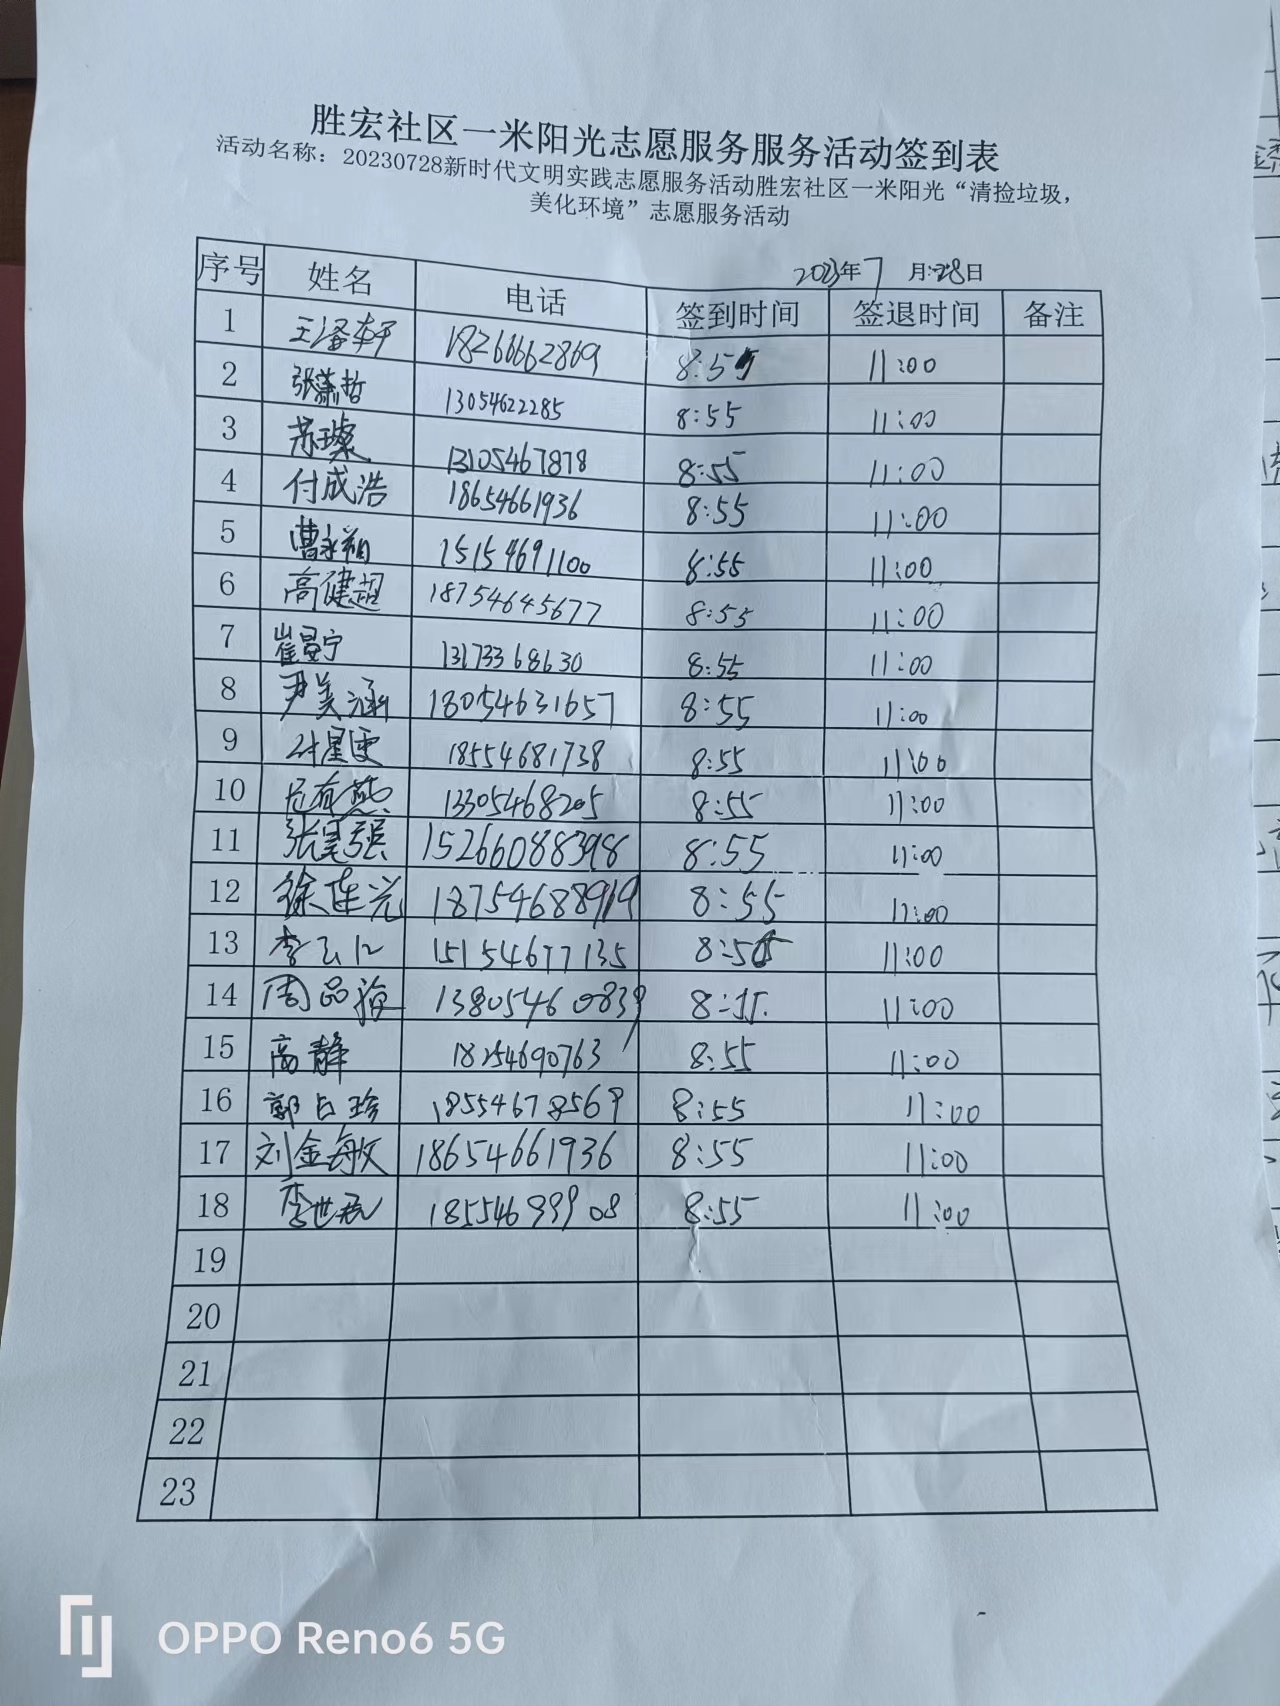 胜宏社区一米阳光志愿服务服务活动签到表
活动名称：20230728新时代文明实践志愿服务活动胜宏社区一米阳光“清捡垃圾，
美化环境”志愿服务活动
2023年7月28日
序号 姓名 电话 签到时间 签退时间 备注
1 王泽轩 18266662869 8:55 11:00
2 张萧哲 13054622285 8:55 11:00
3 苏璨 13105467878 8:55 11:00
4 付成浩 18654661936 8:55 11:00
5 曹永朔 15154691100 8:55 11:00
6 高健超 18754645677 8:55 11:00
7 崔曼宁 13173368630 8:55 11:00
8 尹美涵 18054631657 8:55 11:00
9 18554681738 8:55 11:00
10 13305468205 8:55 11:00
11 张昊强 152660883998 8:55 11:00
12 徐连光 18754688919 8:55 11:00
13 李 15154677135 8:55 11:00
14 周品 13805460839 8:55 11:00
15 高静 18254690763 8:55 11:00
16 郭 珍 18554678569 8:55 11:00
17 刘金敏 18654661936 8:55 11:00
18 李世 18554699908 8:55 11:00
19
20
21
22
23
OPPO Reno6 5G